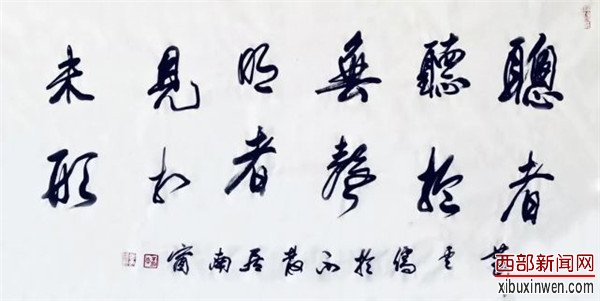 聰者
聽於
無聲
明者
見於
未形
於不散居南窗
西部新闻网
xibuxinwen.com